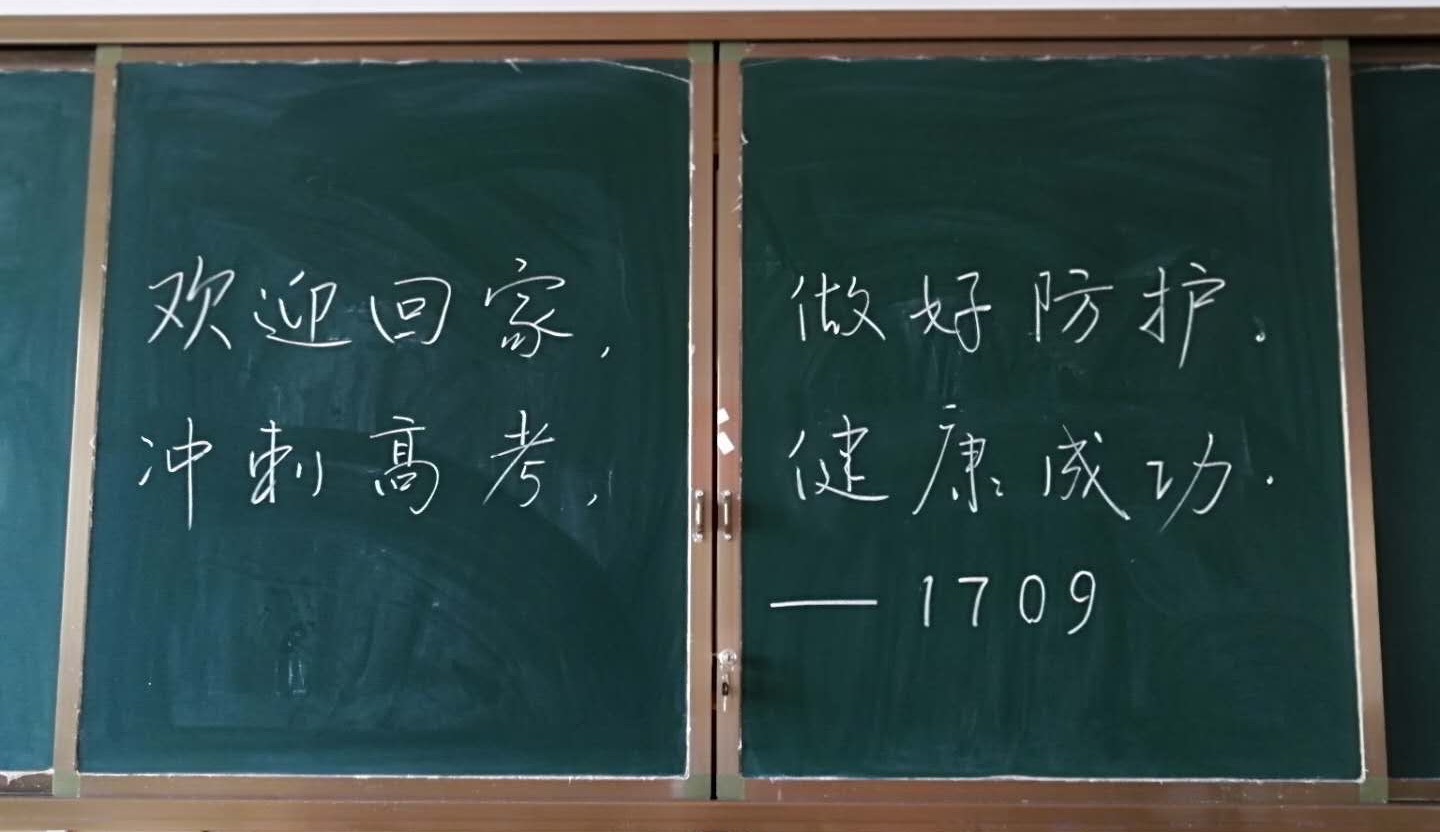 欢迎回家, 做好防护。
冲刺高考, 健康成功.
— 1709